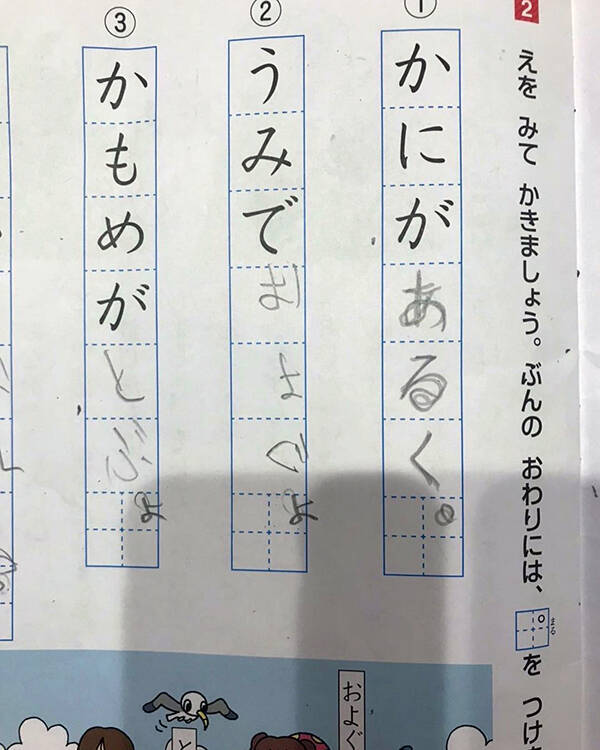 2
えを みて かきましょう。ぶんの おわりには、。を つけ
まる
①
かにがあるく。
②
うみでよぐよ
③
かもめがとぶよ
およぐ
と